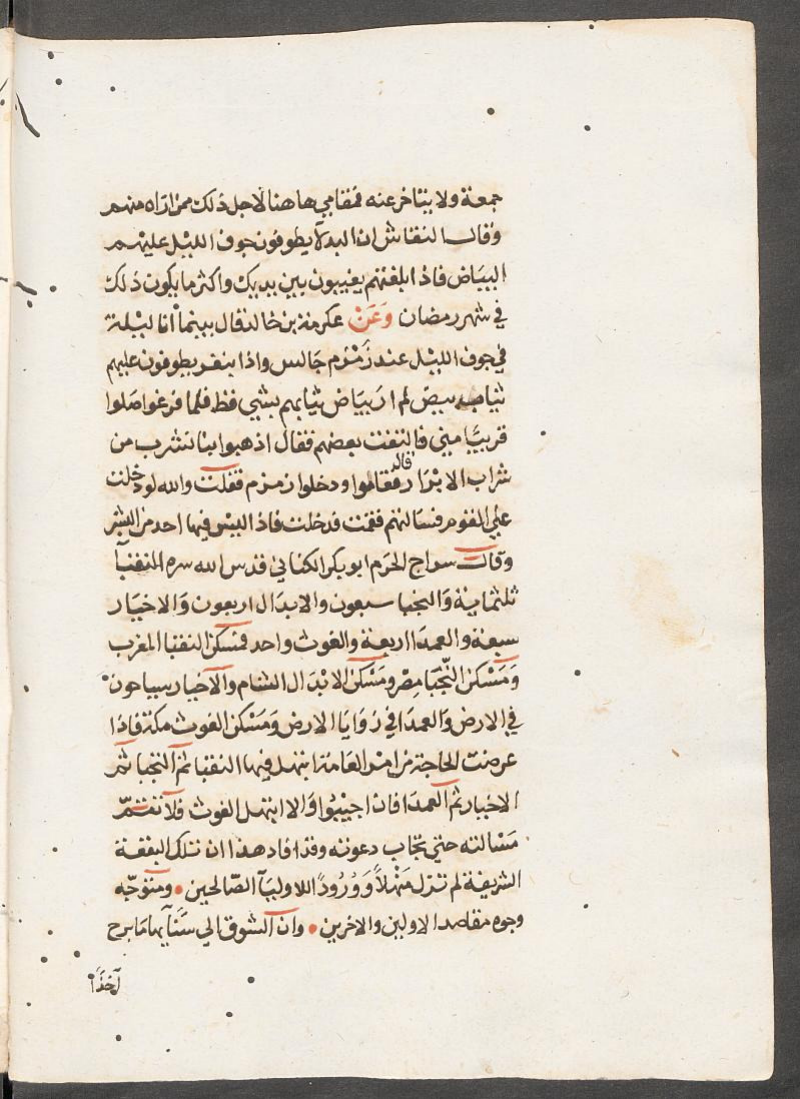 جمعة ولا يتاخر عنه فمقامي هاهنا لاجل ذلك ممن اراه منهم
وقال النقاش ان البدلآ يطوفون جوف الليل عليهم
البياض فاذا بلغتهم يغيبون بين يديك واكثر ما يكون ذلك
في شهر رمضان وَعَنْ عكرمة بن خالد قال بينما انا ليلة
في جوف الليل عند زمزم جالس واذا بنفر يطوفون عليهم
ثياب بيض لم ار بياض ثيابهم بشي قط فلما فرغوا صلوا
قريبا مني فالتفت بعضهم فقال اذهبوا بنا نشرب من
شراب الابرار قال فقاموا ودخلوا زمزم فقلت والله لو دخلت
علي القوم فسالتهم فقمت فدخلت فاذا ليس فيها احد من البشر
وقال سراج الحرم ابو بكر الكتاني قدس الله سره النقبآ
ثلثماية والنجبا سبعون والابدال اربعون والاخيار
سبعة والعمدا اربعة والغوث واحد فمسكن النقبا المغرب
ومسكن النجبا مصر ومسكن الابدال الشام والاخيار سياحون
في الارض والعمدا في زوايا الارض ومسكن الغوث مكة فاذا
عرضت الحاجة من امر العامة ابتهل فيها النقبا ثم النجبا ثم
الاخيار ثم العمدا فان اجيبوا والا ابتهل الغوث فلا تتمّ
مسالته حتي تجاب دعوته وقد افاد هذا ان تلك البقعة
الشريفة لم تزل منهلاً ووروداً للاوليآ الصالحين • ومتوجّه
وجوه مقاصد الاولين والاخرين • وان الشوق الي سَنآيها ما برح
آخذاً